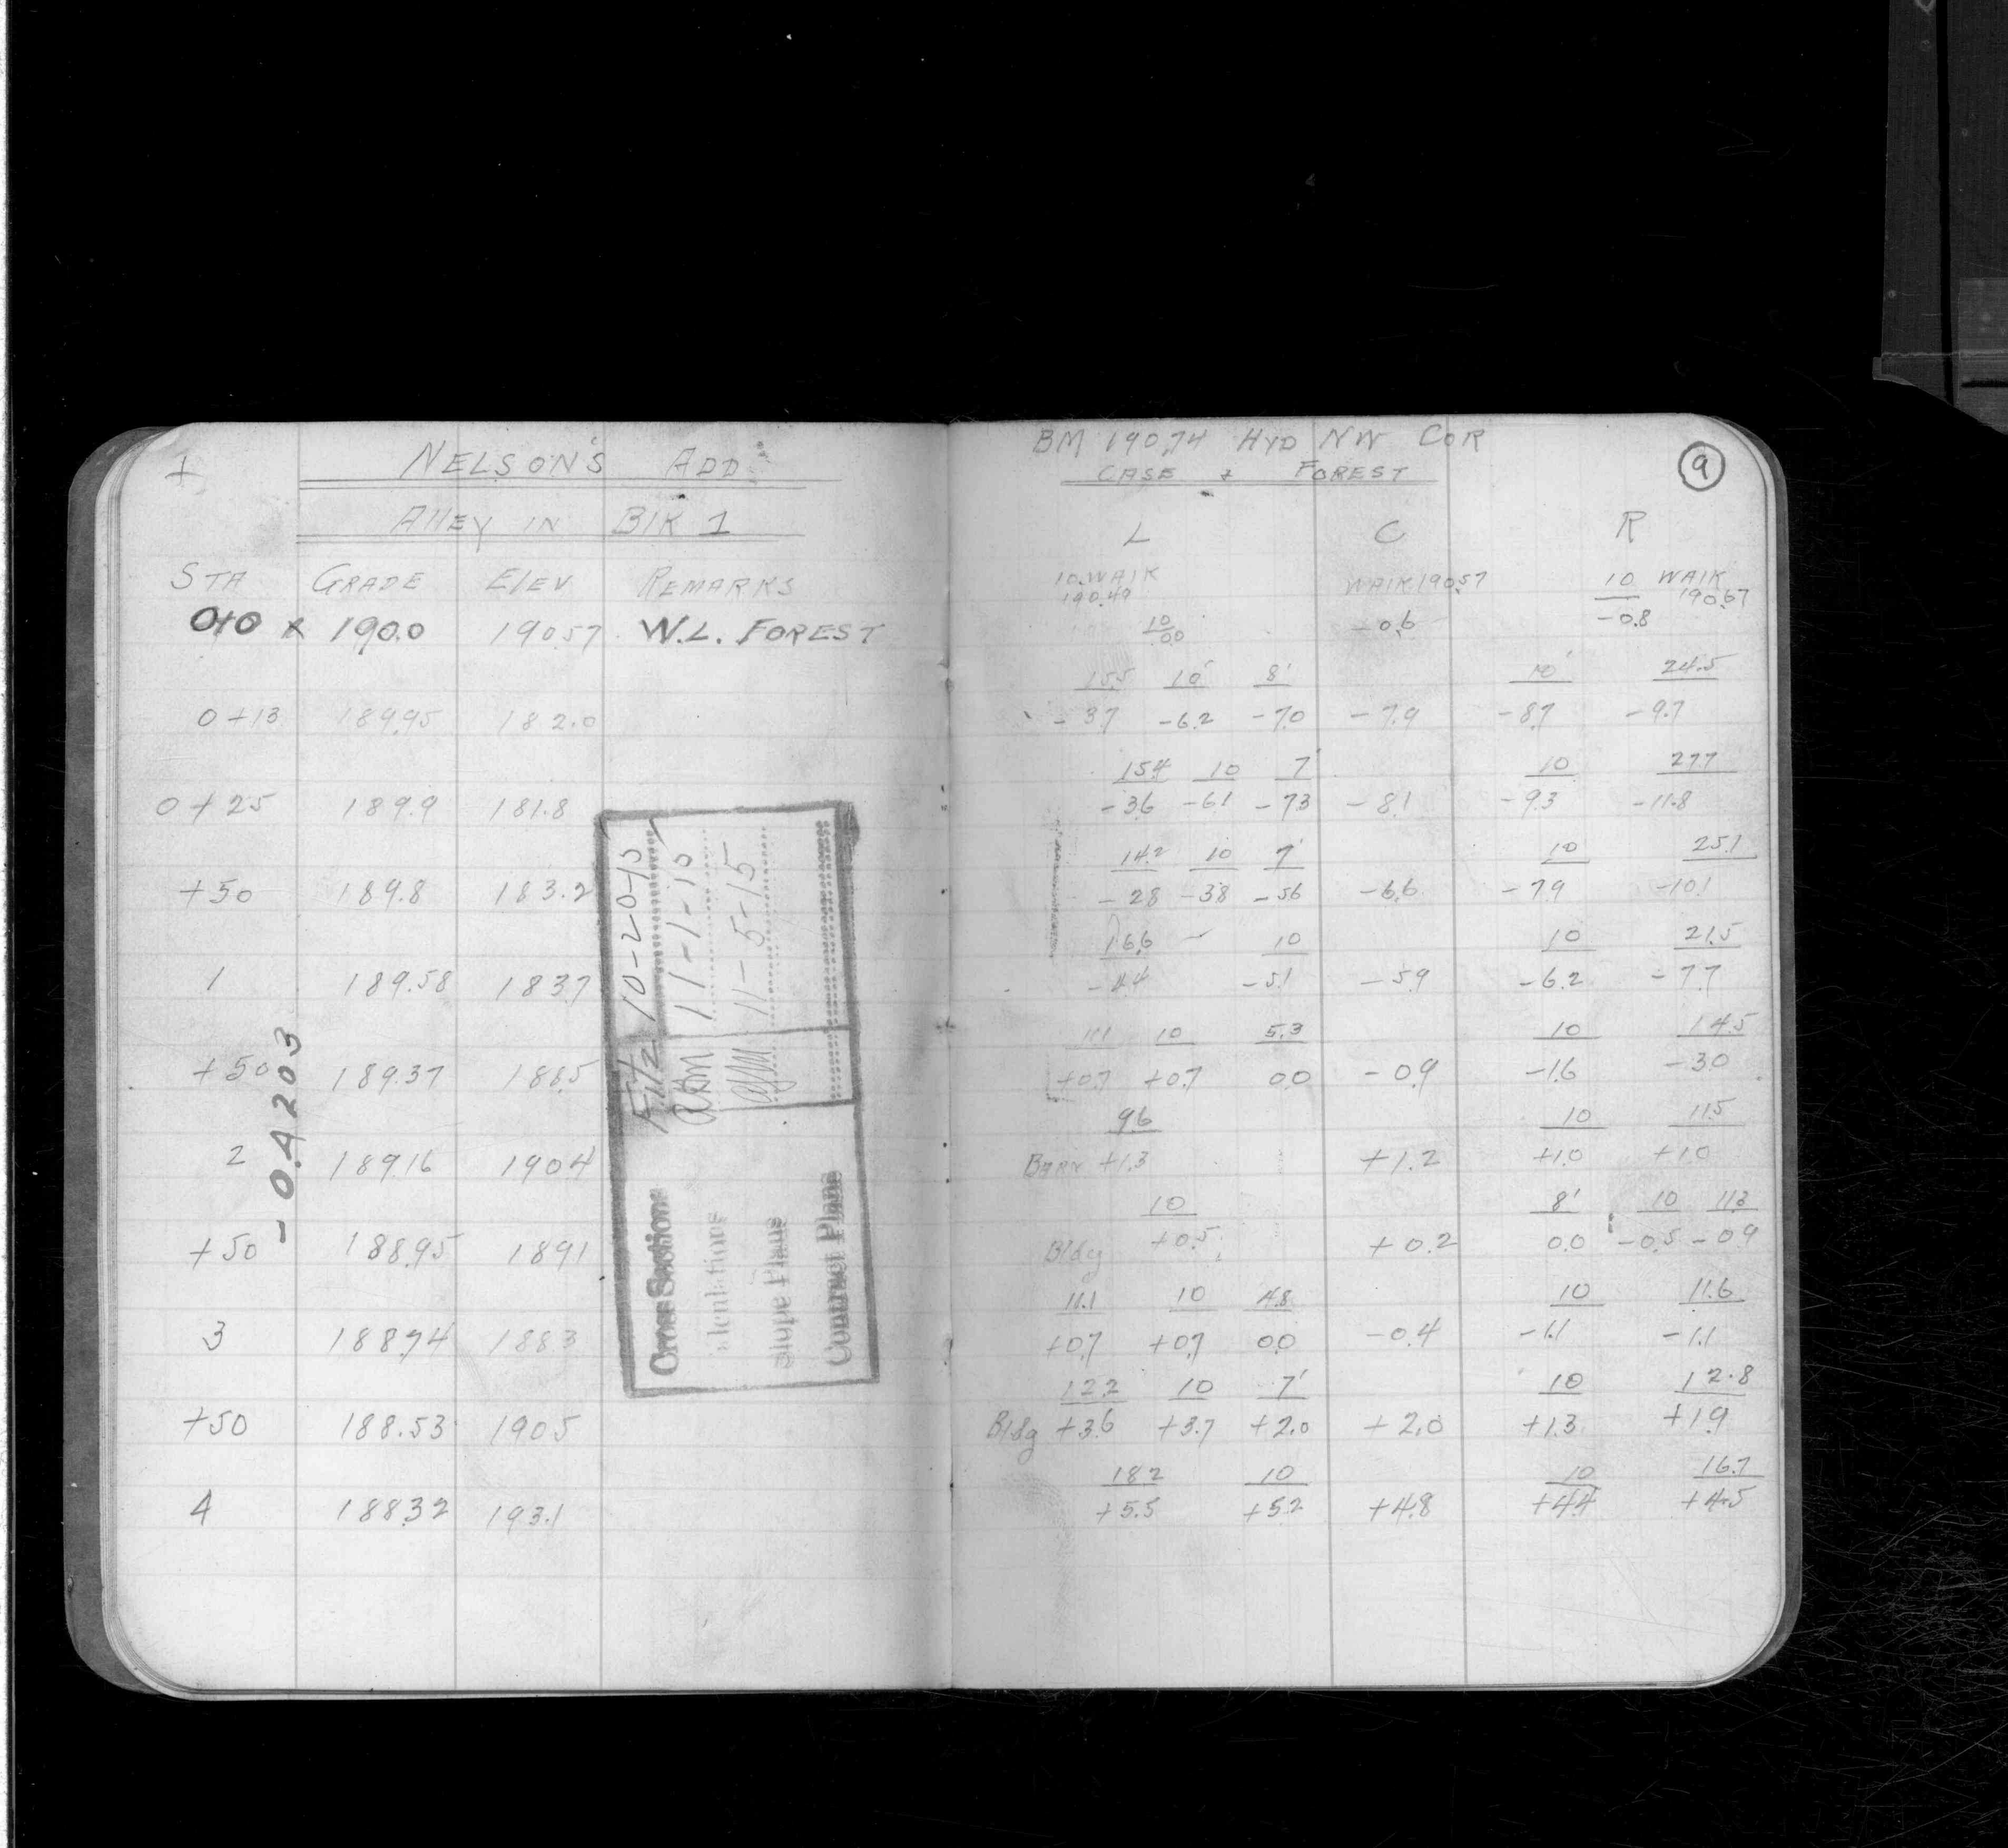 NELSON'S ADD.
Alley in Blk 1
STA GRADE ELEV REMARKS
0+0 x 190.0 190.57 W.L. FOREST
0+13 189.95 182.0
0+25 189.9 181.8
+50 189.8 183.2
1 189.58 183.7
+50 189.37 188.5
2 189.16 190.4
+50 188.95 189.1
3 188.74 188.3
+50 188.53 190.5
4 188.32 193.1
-0.4203
Cross Sections Fitz 10-20-15
11-1-15
Slope Plans 11-5-15
Contract Plans
BM 190.74 HYD NW COR
CASE & FOREST
9
L C R
10 WALK WALK 190.57 10 WALK
190.49 190.67
10 -0.6 -0.8
0.0
15.5 10' 8' 10' 24.5
-3.7 -6.2 -7.0 -7.9 -8.7 -9.7
15.4 10 7' 10 27.7
-3.6 -6.1 -7.3 -8.1 -9.3 -11.8
14.2 10 7' 10 25.1
-2.8 -3.8 -5.6 -6.6 -7.9 -10.1
16.6 10 10 21.5
-4.4 -5.1 -5.9 -6.2 -7.7
11.1 10 5.3 10 14.5
+0.7 +0.7 0.0 -0.9 -1.6 -3.0
9.6 10 11.5
Barn +1.3 +1.2 +1.0 +1.0
10 8' 10 11.3
Bldg +0.5 +0.2 0.0 -0.5 -0.9
11.1 10 4.8 10 11.6
+0.7 +0.7 0.0 -0.4 -1.1 -1.1
12.2 10 7' 10 12.8
Bldg +3.6 +3.7 +2.0 +2.0 +1.3 +1.9
18.2 10 10 16.7
+5.5 +5.2 +4.8 +4.4 +4.5